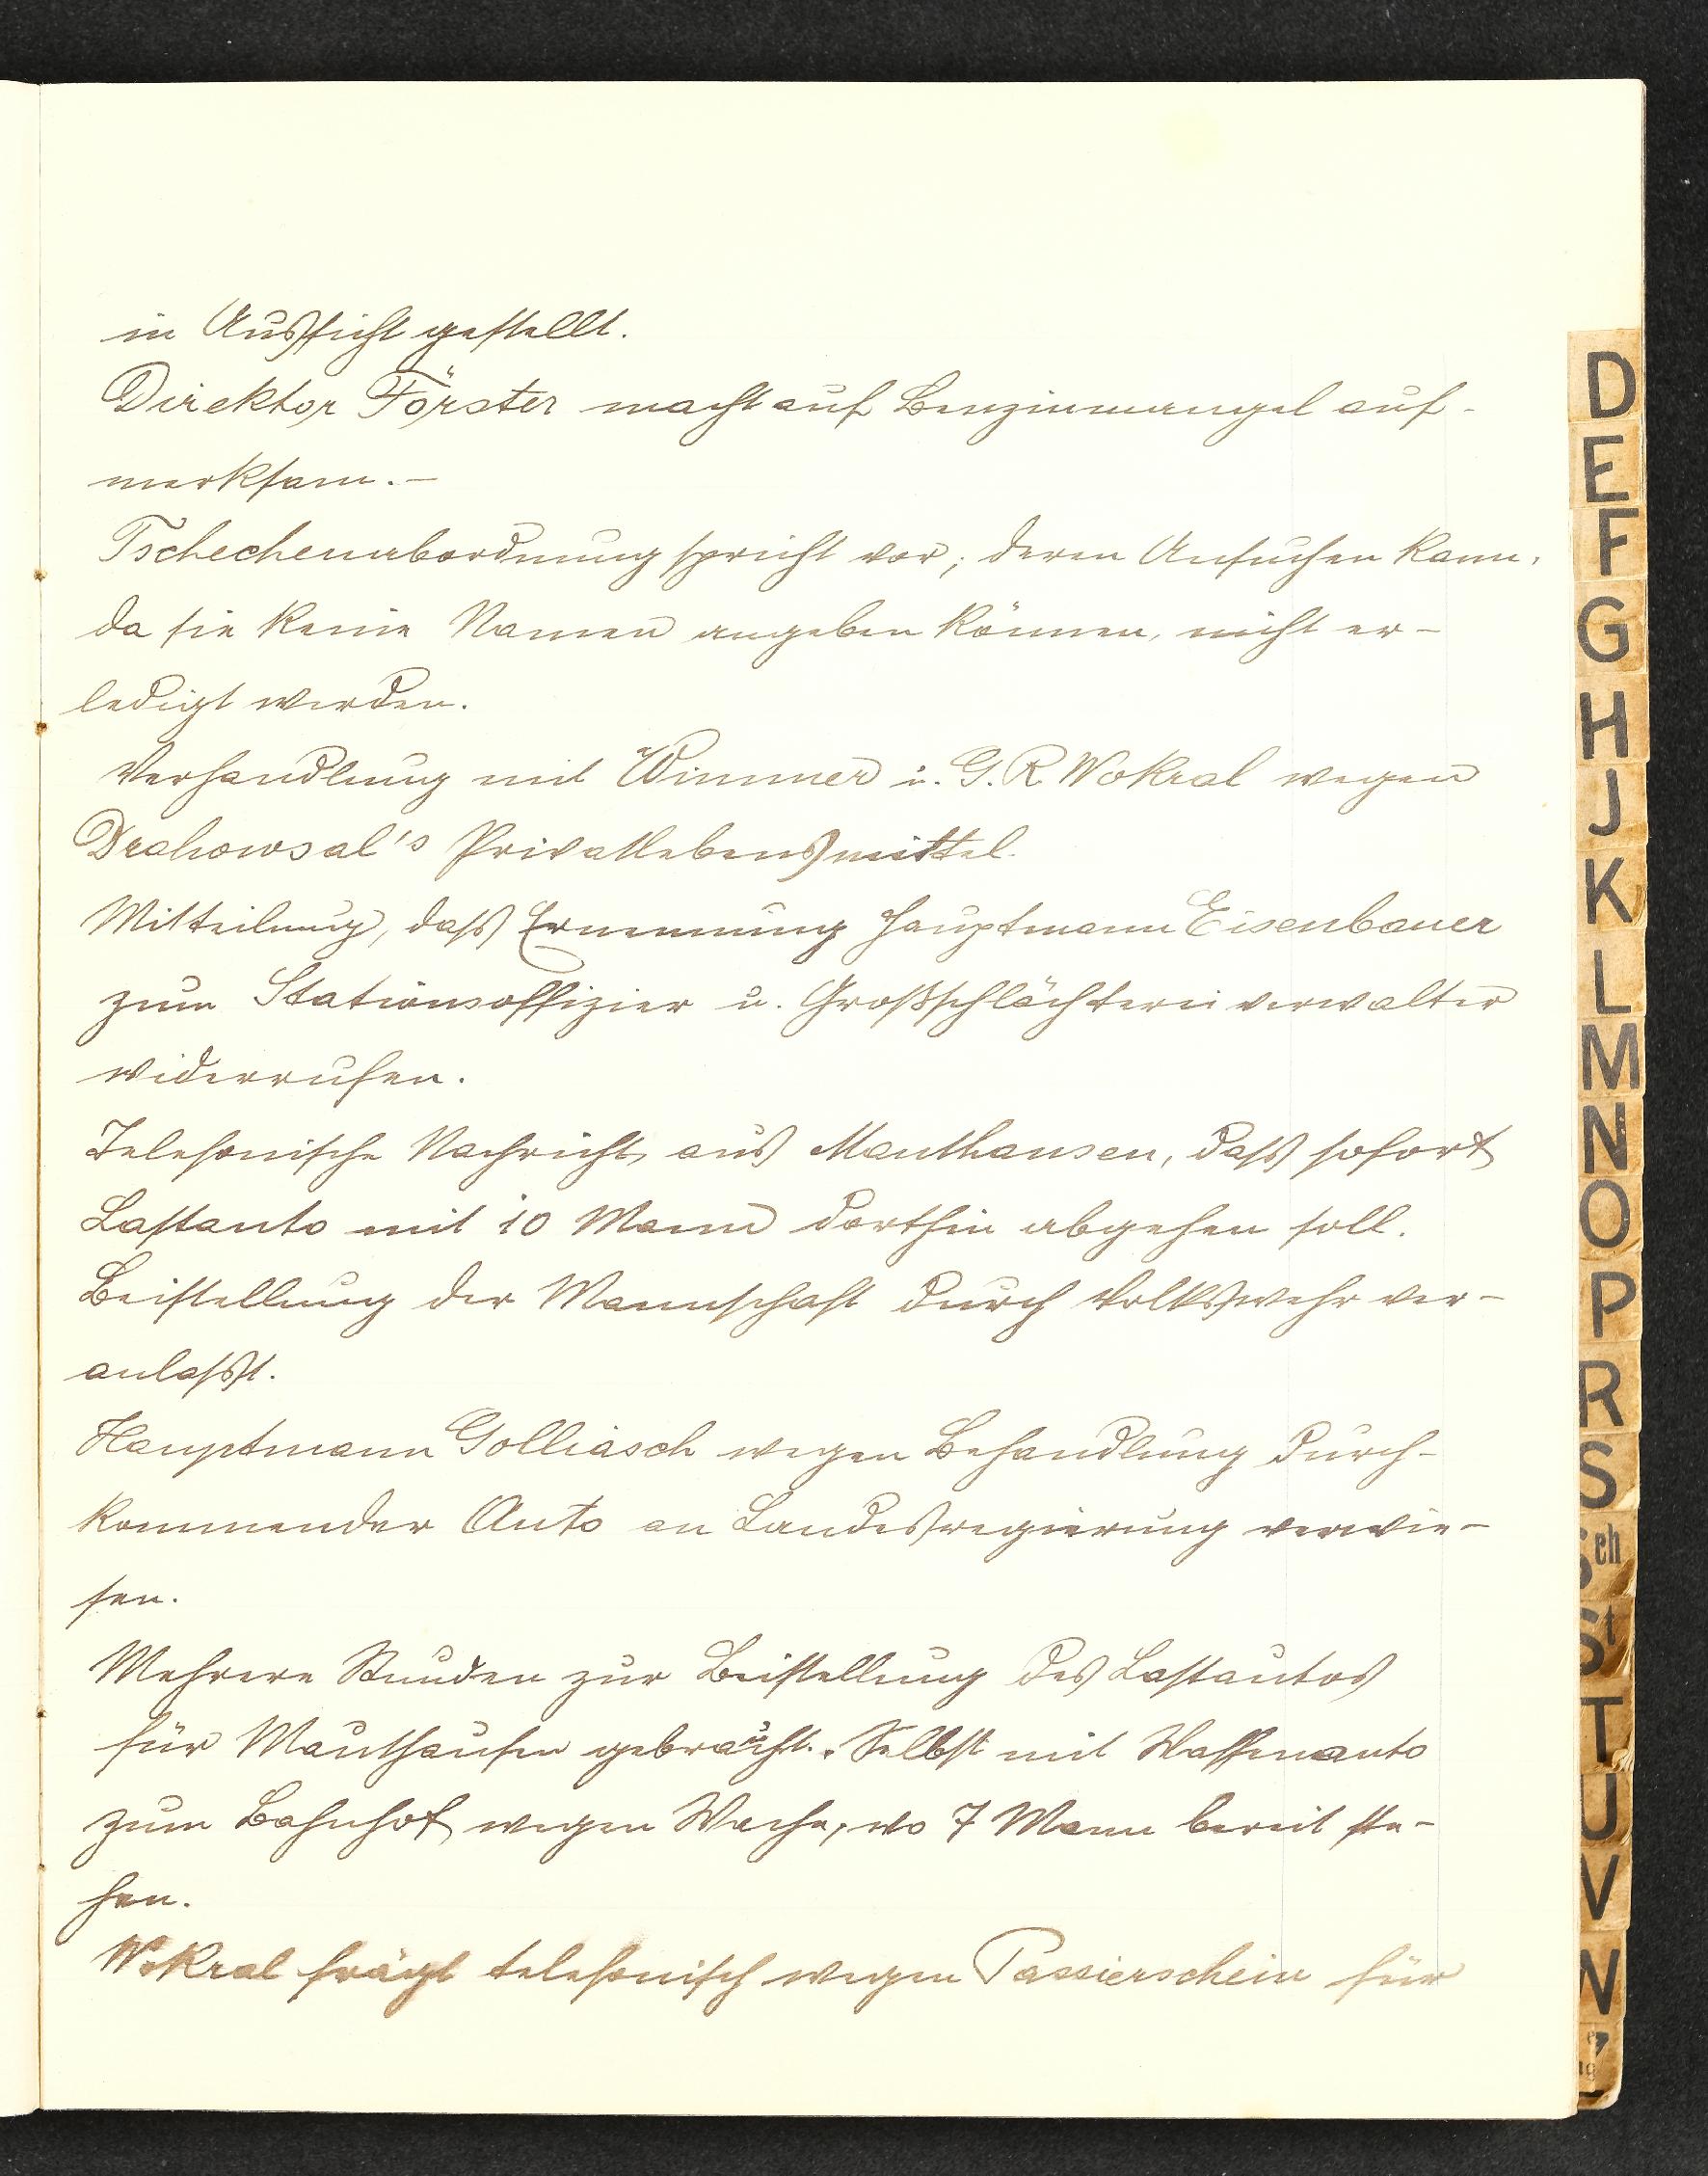 in Aussicht gestellt.
Direktor Förster macht auf Benzinmangel auf-
merksam.-
Tschechenabordnung spricht vor; deren Ansuchen kann,
da sie keine Namen angeben können, nicht er-
ledigt werden.
Verhandlung mit Wimmer u. G. R Wokral wegen
Drahowsal's Privatlebensmittel.
Mitteilung, dass Ernennung Hauptmann Eisenbauer
zum Stationsoffizier u. Großschlächtereiverwalter
widerrufen.
Telefonische Nachricht aus Mauthausen, dass sofort
Lastauto mit 10 Mann dorthin abgehen soll.
Beistellung der Mannschaft durch Volkswehr ver-
anlasst.
Hauptmann Golliasch wegen Behandlung durch-
kommender Auto an Landesregierung verwie-
sen.
Mehrere Stunden zur Beistellung des Lastautos
für Mauthausen gebraucht. Selbst mit Waffenauto
zum Bahnhof wegen Wache, wo 7 Mann bereit ste-
hen.
Wokral frägt telefonisch wegen Passierschein für
D
E
F
G
H
J
K
L
M
N
O
P
R
S
Sch
St
T
U
V
W